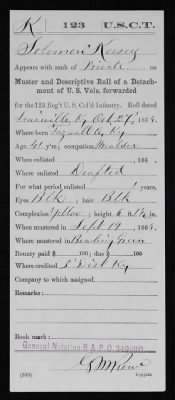 K 123 U.S.C.T.
Solomon Kersey
Appears with rank of Private on
Muster and Descriptive Roll of a Detach-
ment of U. S. Vols. forwarded
for the 123 Reg't U. S. Col'd Infantry. Roll dated
Louisville Ky Oct 27, 1864.
Where born Ky
Age 40 y'rs; occupation
When enlisted , 186 .
Where enlisted Drafted
For what period enlisted 1 years.
Eyes Blk ; hair Blk
Complexion Yellow ; height 6 ft. in.
When mustered in Sept 19 , 1864.
Where mustered in Bowling Green
Bounty paid $ 100 ; due $ 100
Where credited Dist Ky
Company to which assigned
Remarks:
Book mark:
General Notation R & P O
(339) Copyist.